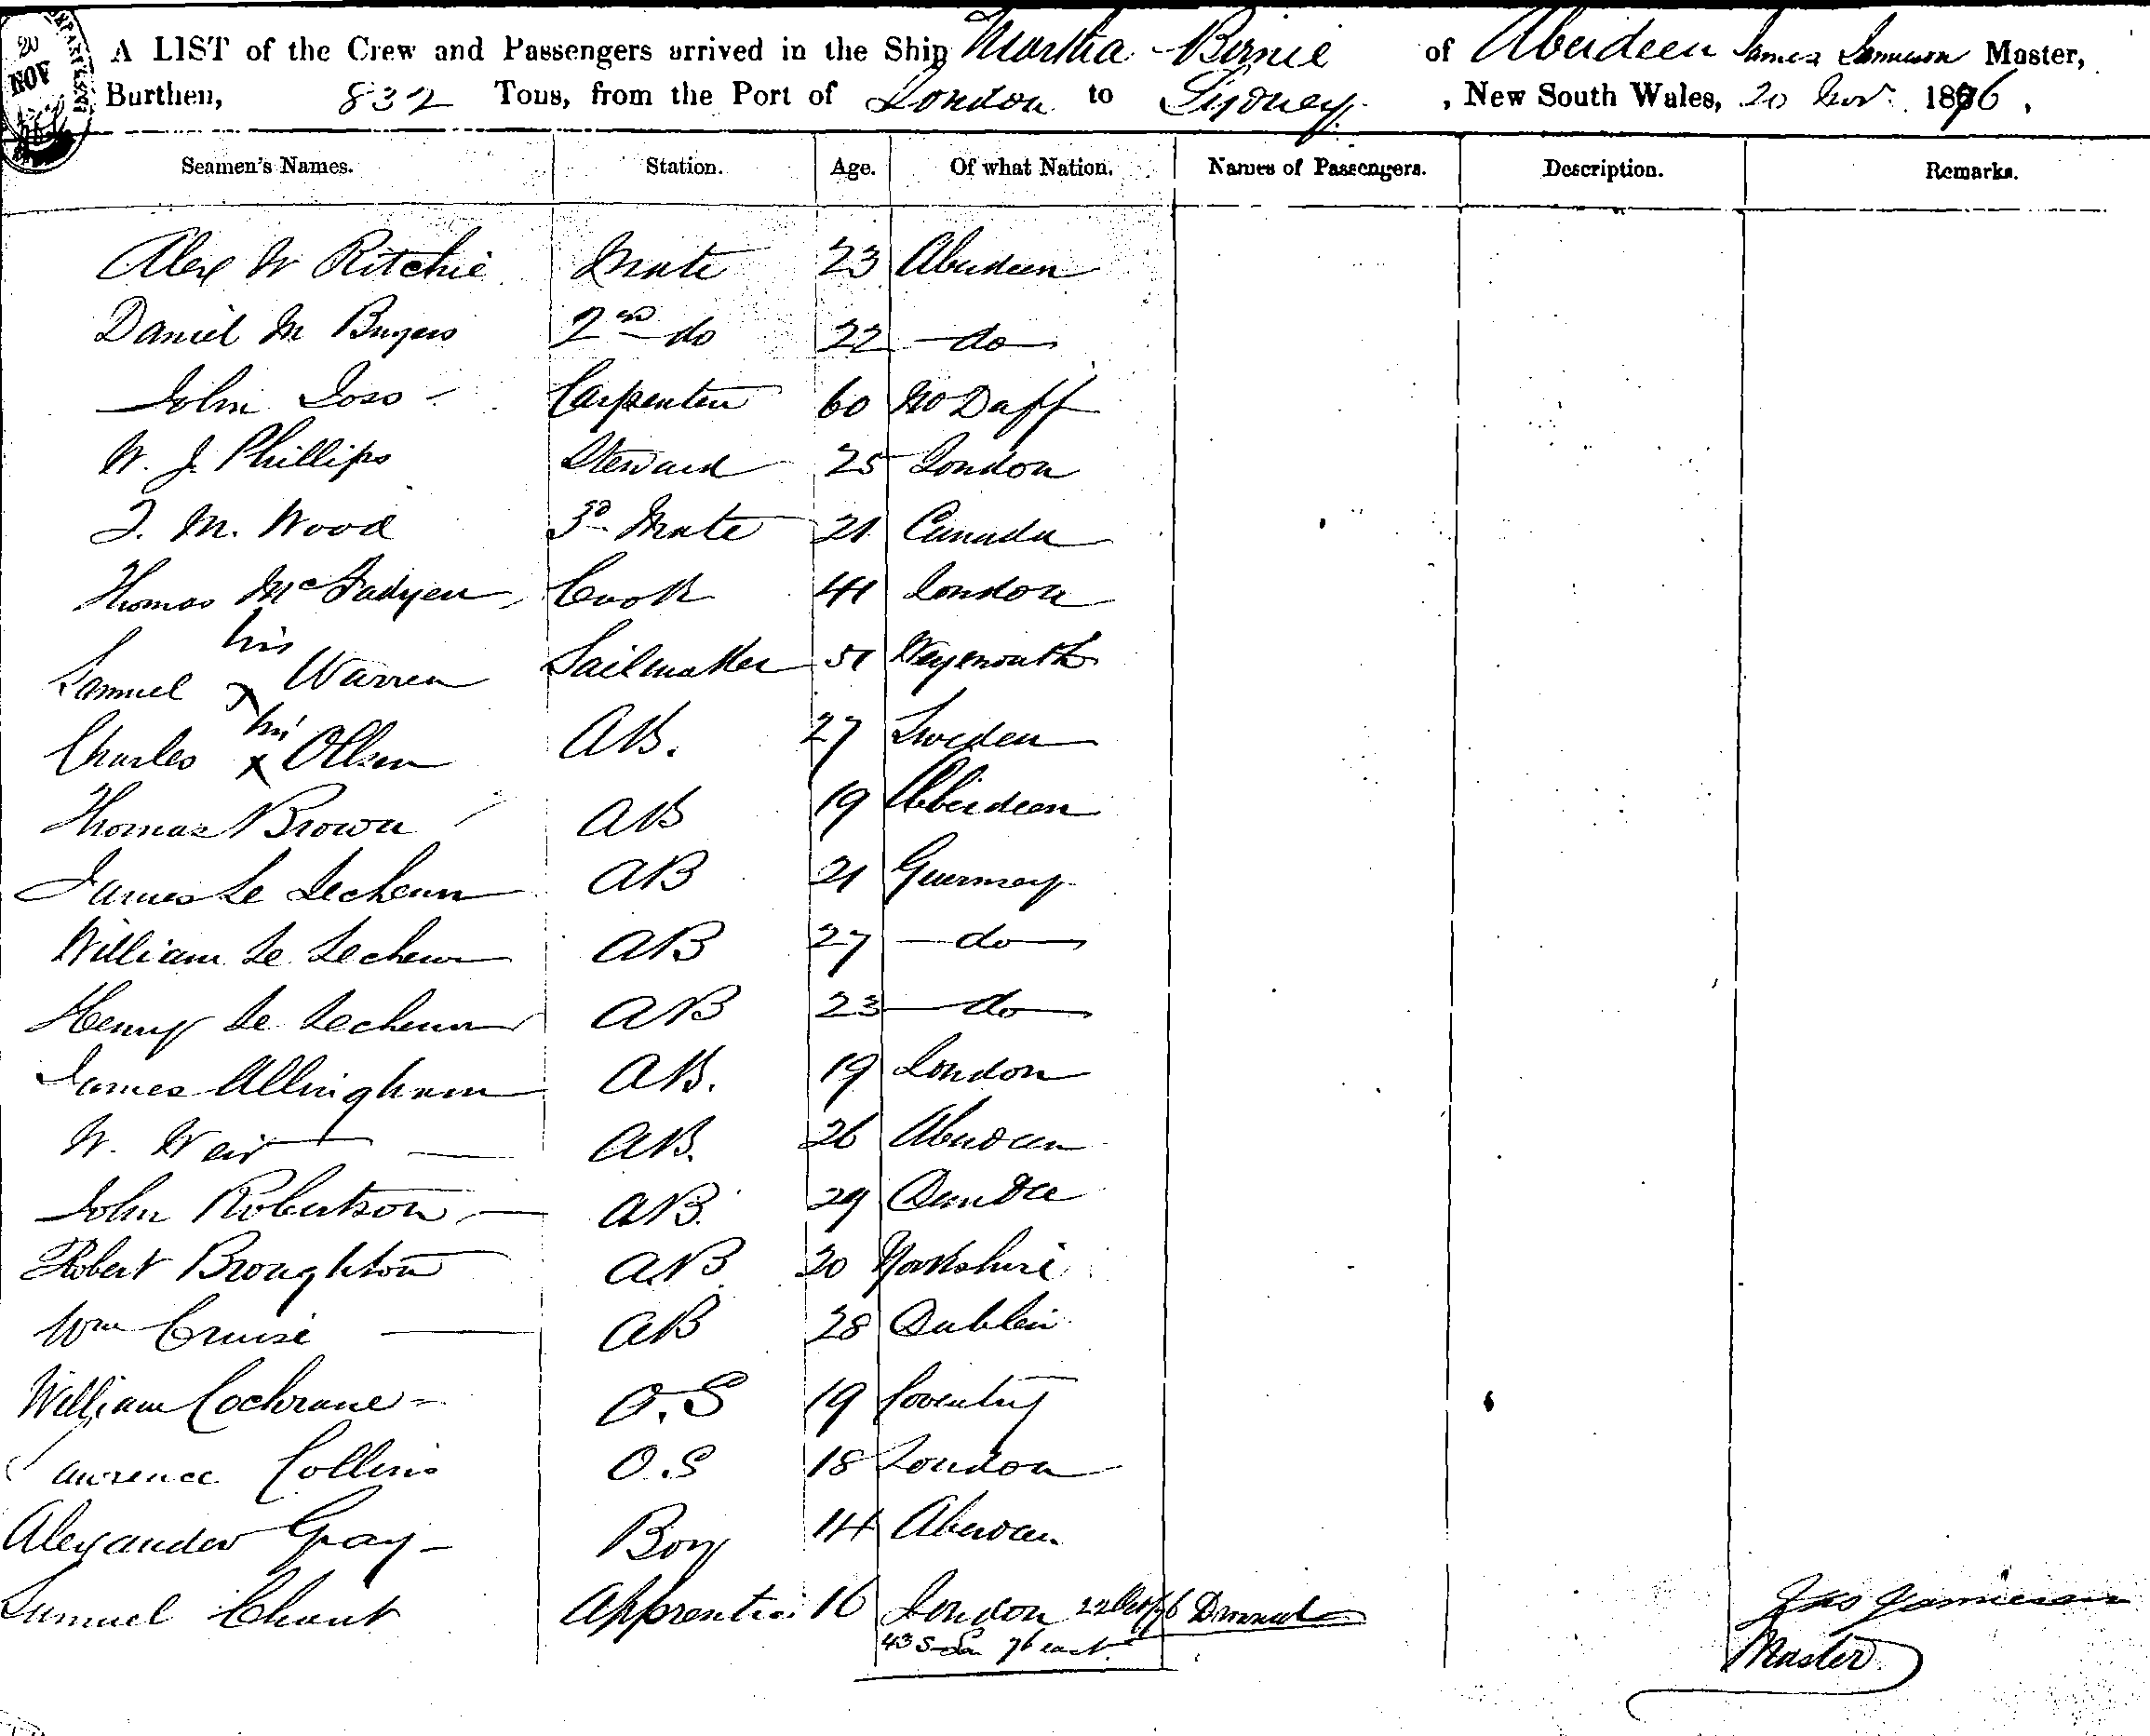 20
NOV
A LIST of the Crew and Passengers arrived in the Ship Martha Birnie of Aberdeen James Jamieson Master,
Burthen, 832 Tons, from the Port of London to Sydney, New South Wales, 20 Nov. 1876,
Seamen's Names. Station. Age. Of what Nation. Names of Passengers. Description. Remarks.
Alex W Ritchie Mate 23 Aberdeen
Daniel M Buyers 2nd do 22 do
John Carpenter 60 Duff
W. J. Phillips Steward 25 London
J. M. Wood 3d Mate 21 Canada
Thomas McFadyen Cook 41 London
his
Samuel x Warren Sailmaker 51 Weymouth
his
Charles x Ollsen AB. 27 Sweden
Thomas Brown AB 19 Aberdeen
James Le Lecheur AB 21 Guernsey
William Le Lecheur AB 27 do
Henry Le Lecheur AB 23 do
James Allingham AB. 19 London
W. Weir AB. 26 Aberdeen
John Robertson AB. 29 Dundee
Robert Broughton AB 20 Yorkshire
Wm Cruise AB 28 Dublin
William Cochrane O.S 19 Coventry
Lawrence Collins O.S 18 London
Alexander Gray Boy 14 Aberdeen
Samuel Chant Apprentice 16 London 22 Oct/76 Drowned
43 S 76 east
Jas Jamieson
Master